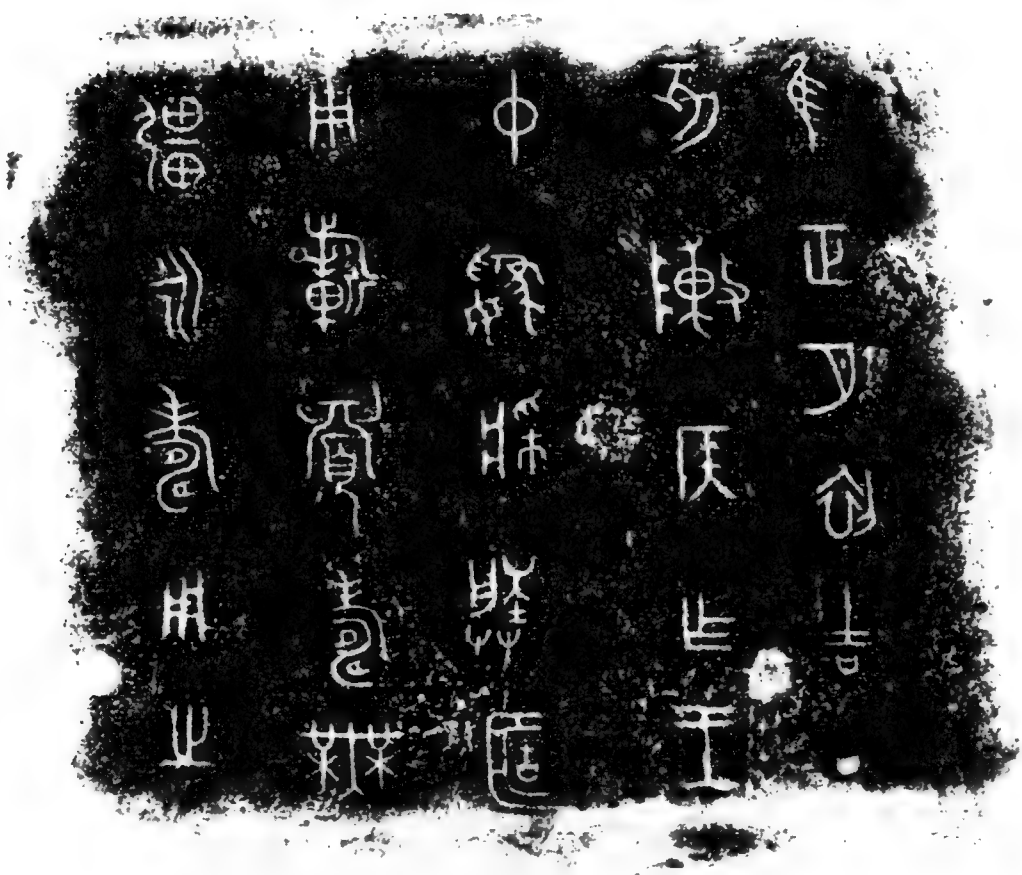 隹正月初吉丁
亥陳侯乍王
中媯媵𠤳
用𣄨眉壽無
疆永壽用之